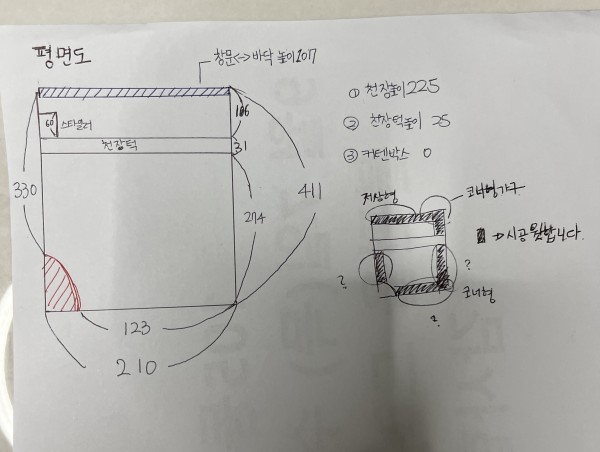 평면도
창문<->바닥 높이 207
106
60 스타일러
천장턱 31
330
411
274
123
210
① 천장높이 225
② 천장턱높이 25
③ 커텐박스 0
저상형
코너형가구
→시공 원합니다.
?
?
코너형
?